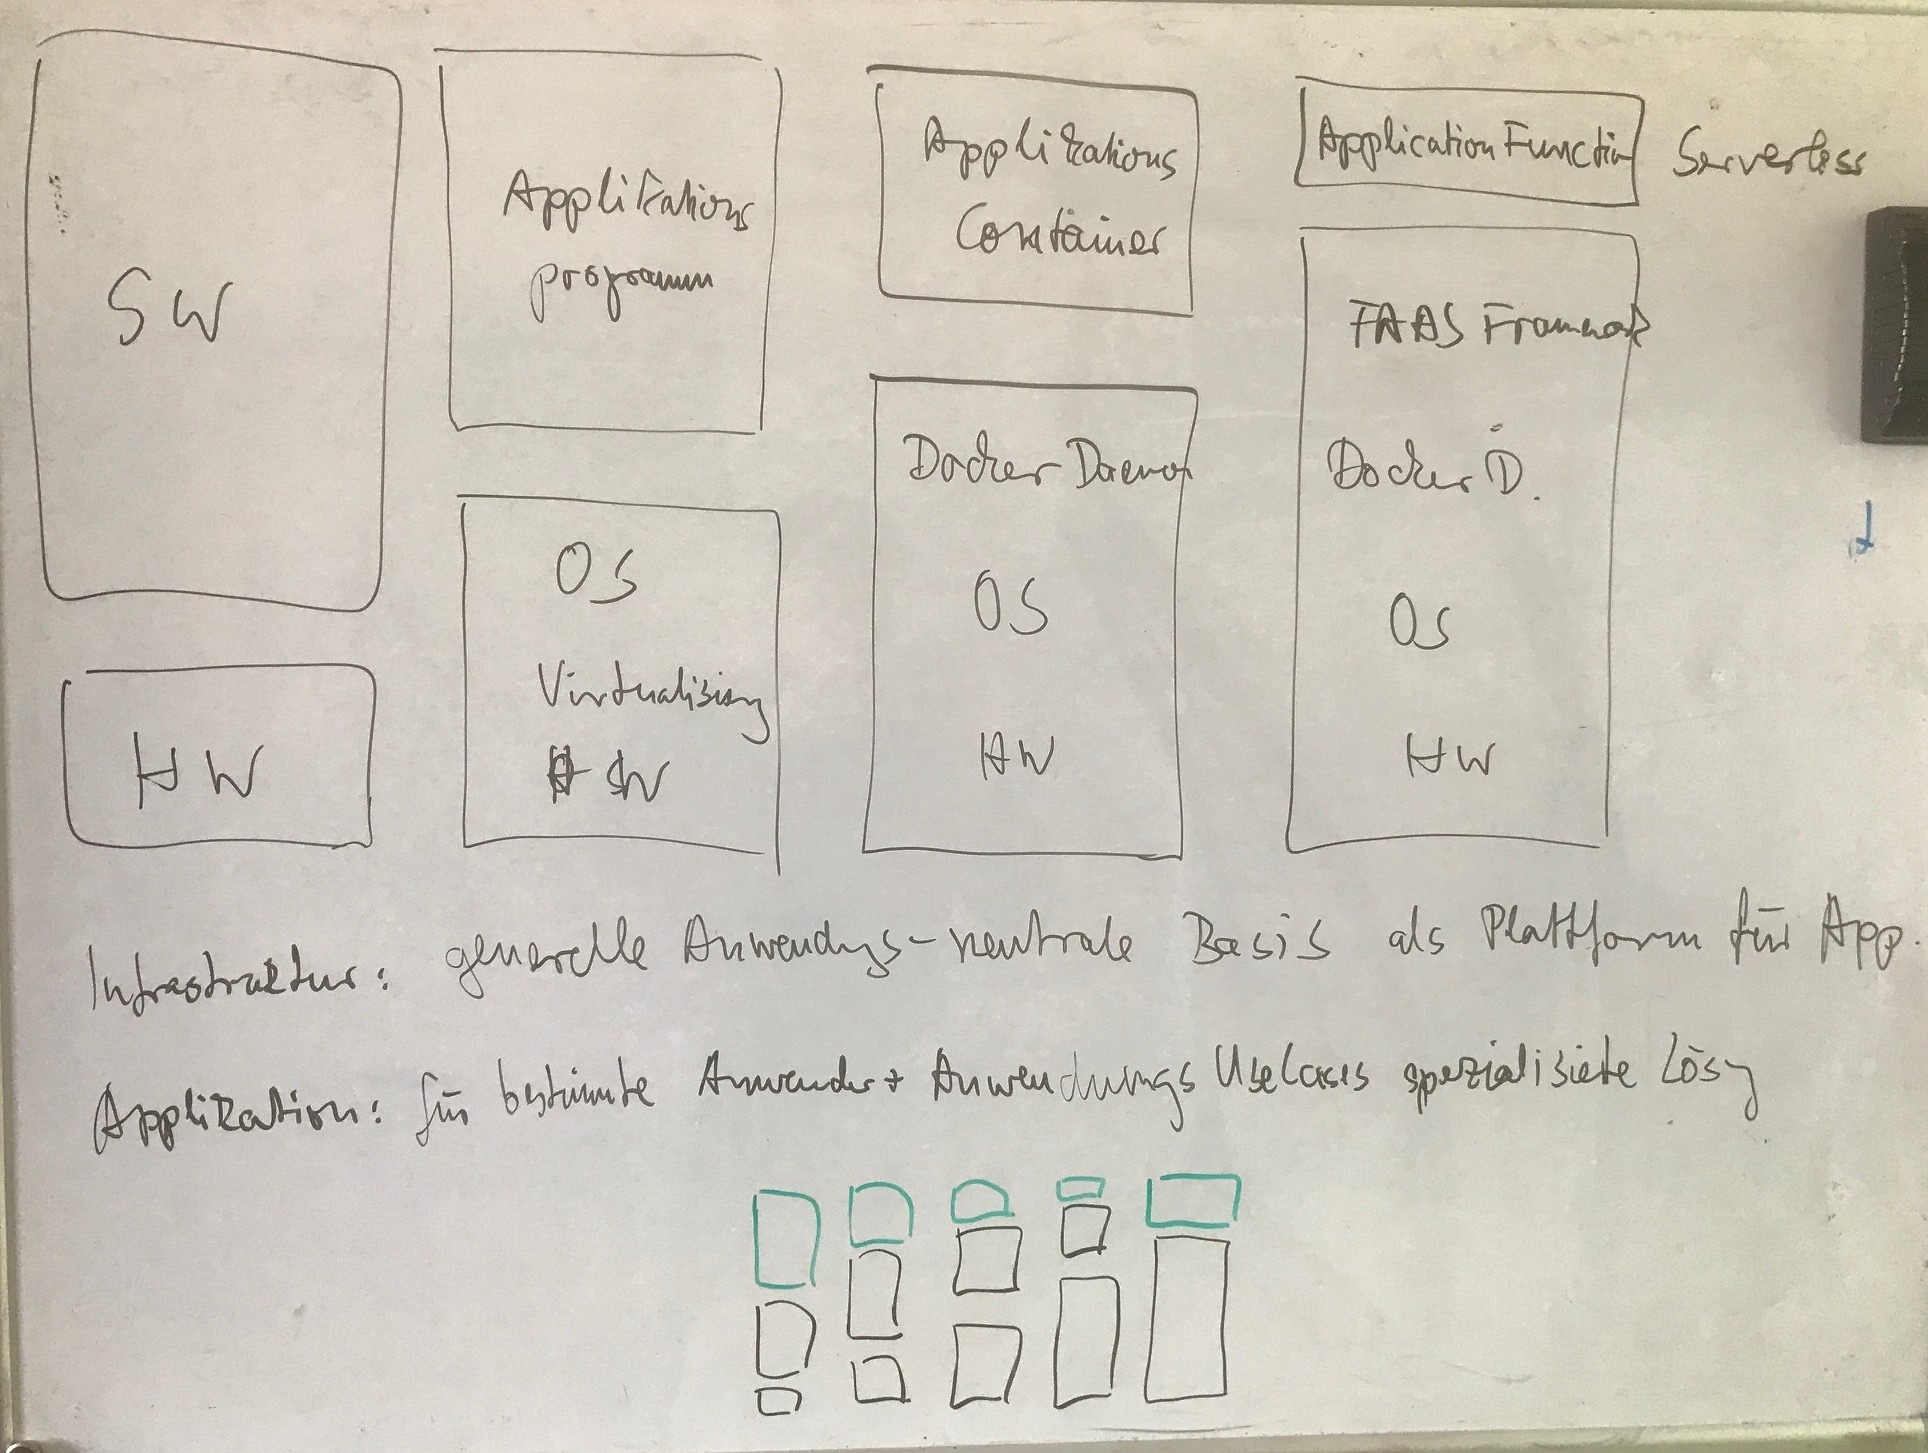 SW
HW
Applikations
programm
OS
Virtualisierg
HW
Applikations
Container
Docker Daemon
OS
HW
Application Function
Serverless
FAAS Framework
Docker D.
OS
HW
Infrastruktur: generelle Anwendungs-neutrale Basis als Plattform für App.
Applikation: für bestimmte Anwender + Anwendungs UseCases spezialisierte Lösg